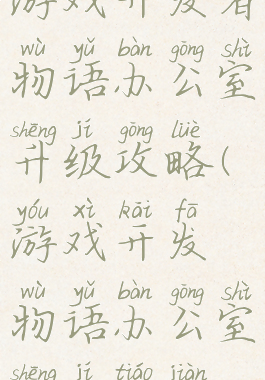 游戏开发者
wù yǔ bàn gōng shì
物语办公室
shēng jí gōng lüè
升级攻略(
yóu xì kāi fā
游戏开发
wù yǔ bàn gōng shì
物语办公室
shēng jí tiáo jiàn